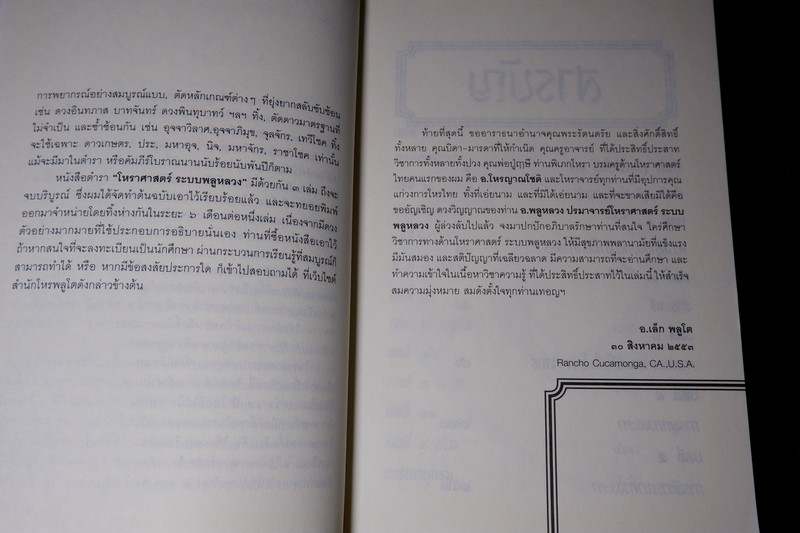 การพยากรณ์อย่างสมบูรณ์แบบ, ตัดหลักเกณฑ์ต่างๆ ที่ยุ่งยากสลับซับซ้อน
เช่น ดวงอินทภาส บาทจันทร์ ดวงพินทุบาทว์ ฯลฯ ทิ้ง, ตัดดาวมาตรฐานที่
ไม่จำเป็น และซ้ำซ้อนกัน เช่น อุจจาวิลาศ,อุจจาภิมุข, จุลจักร, เทวีโชค ทิ้ง
จะใช้เฉพาะ ดาวเกษตร, ประ, มหาอุจ, นิจ, มหาจักร, ราชาโชค เท่านั้น
แม้จะมีมาในตำรา หรือคัมภีร์โบราณนานนับร้อยนับพันปีก็ตาม
หนังสือตำรา "โหราศาสตร์ ระบบพลูหลวง" มีด้วยกัน ๓ เล่ม ถึงจะ
จบบริบูรณ์ ซึ่งผมได้จัดทำต้นฉบับเอาไว้เรียบร้อยแล้ว และจะทยอยพิมพ์
ออกมาจำหน่ายโดยทิ้งห่างกันในระยะ ๖ เดือนต่อหนึ่งเล่ม เนื่องจากมีดวง
ตัวอย่างมากมายที่ใช้ประกอบการอธิบายนั่นเอง ท่านที่ซื้อหนังสือเอาไว้
ถ้าหากสนใจที่จะลงทะเบียนเป็นนักศึกษา ผ่านกระบวนการเรียนรู้ที่สมบูรณ์ก็
สามารถทำได้ หรือ หากมีข้อสงสัยประการใด ก็เข้าไปสอบถามได้ ที่เว็บไซต์
สำนักโหรพลูโตดังกล่าวข้างต้น
ท้ายที่สุดนี้ ขออาราธนาอำนาจคุณพระรัตนตรัย และสิ่งศักดิ์สิทธิ์
ทั้งหลาย คุณบิดา-มารดาที่ให้กำเนิด คุณครูอาจารย์ ที่ได้ประสิทธิ์ประสาท
วิชาการทั้งหลายทั้งปวง คุณพ่อปู่ฤๅษี ท่านพิเภกโหรา บรมครูด้านโหราศาสตร์
ไทยคนแรกของผม คือ อ.โหรญาณโชติ และโหราจารย์ทุกท่านที่มีอุปการคุณ
แก่วงการโหรไทย ทั้งที่เอ่ยนาม และที่มิได้เอ่ยนาม และที่จะขาดเสียมิได้คือ
ขออัญเชิญ ดวงวิญญาณของท่าน อ.พลูหลวง ปรมาจารย์โหราศาสตร์ ระบบ
พลูหลวง ผู้ล่วงลับไปแล้ว จงมาปกปักอภิบาลรักษาท่านที่สนใจ ใคร่ศึกษา
วิชาการทางด้านโหราศาสตร์ ระบบพลูหลวง ให้มีสุขภาพพลานามัยที่แข็งแรง
มีมันสมอง และสติปัญญาที่เฉลียวฉลาด มีความสามารถที่จะอ่านศึกษา และ
ทำความเข้าใจในเนื้อหาวิชาความรู้ ที่ได้ประสิทธิ์ประสาทไว้ในเล่มนี้ ให้สำเร็จ
สมความมุ่งหมาย สมดังตั้งใจทุกท่านเทอญฯ
อ.เล็ก พลูโต
๓๐ สิงหาคม ๒๕๕๓
Rancho Cucamonga, CA.,U.S.A.